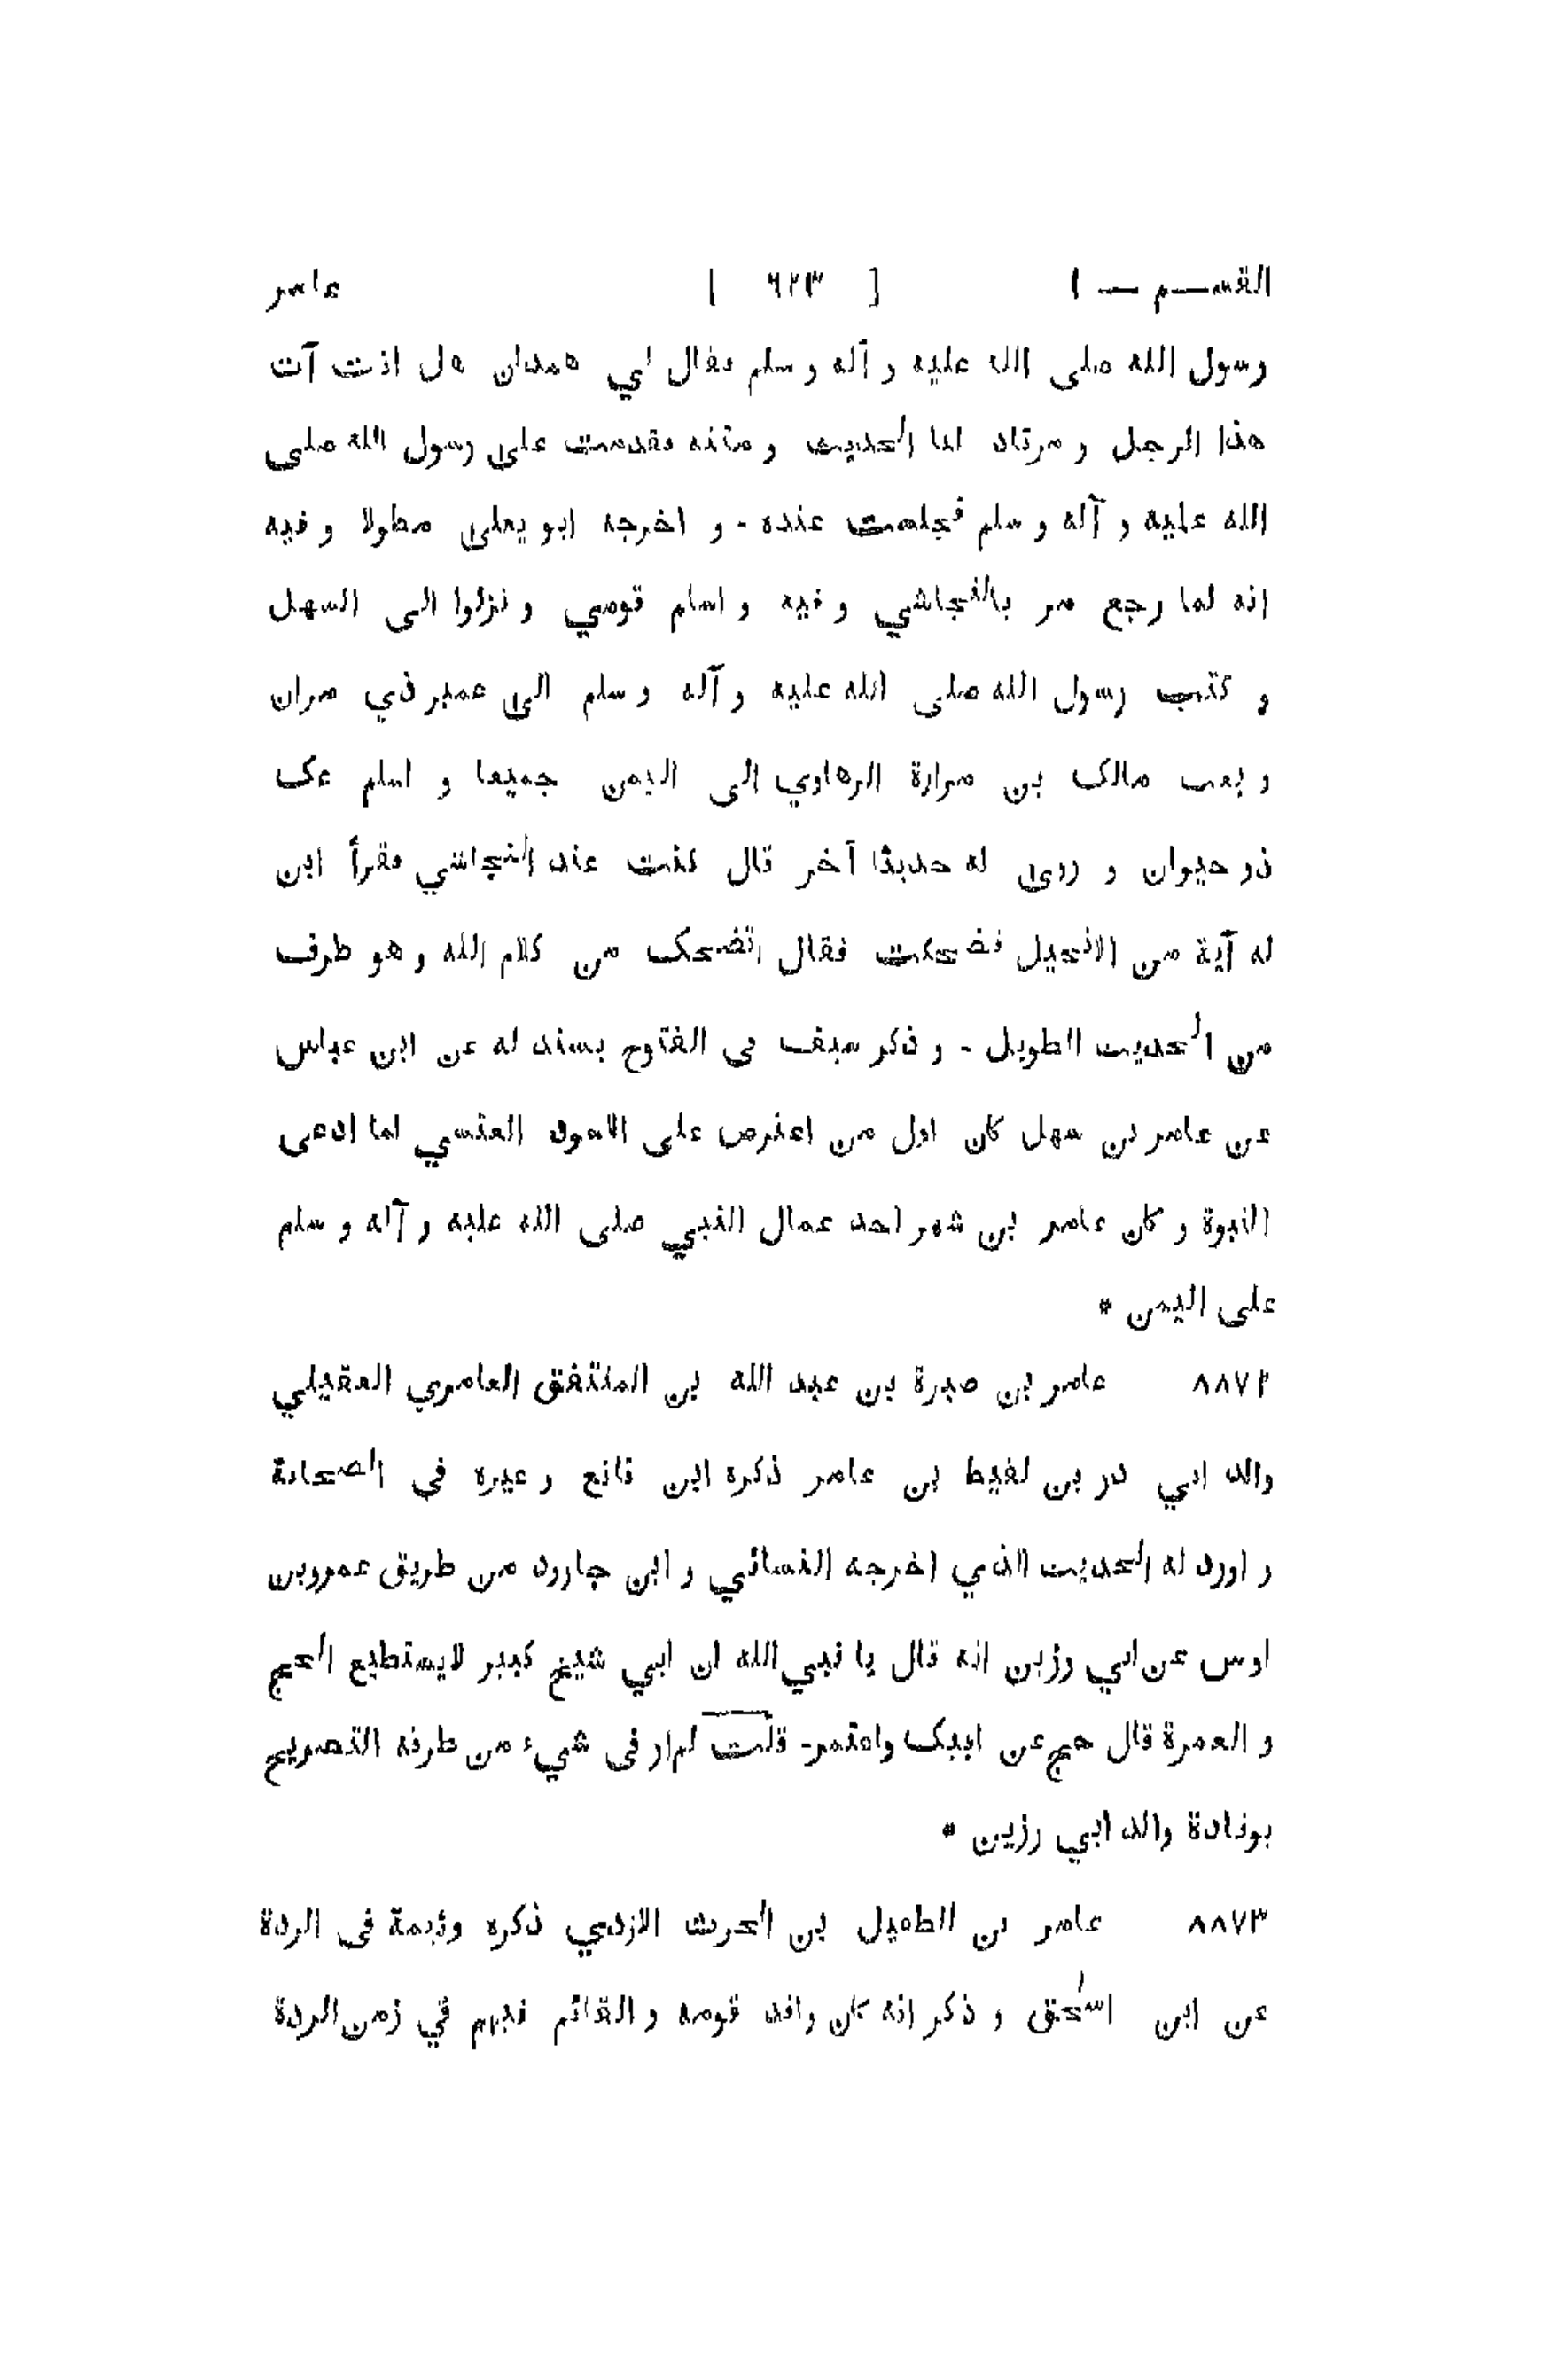 القسم — ١ [ ٦٢٣ ] عامر
رسول الله صلى الله عليه و آله و سلم فقال لي همدان هل انت آت
هذا الرجل و مرتاد لنا الحديث و مننه فقدمت على رسول الله صلى
الله عليه و آله و سلم فجلست عنده - و اخرجه ابو يعلى مطولا و فيه
انه لما رجع مر بالنجاشي و فيه و اسلم قومي و نزلوا الى السهل
و كتب رسول الله صلى الله عليه و آله و سلم الى عمير ذي مران
و بعث مالك بن مرارة الرهاوي الى اليمن جميعا و اسلم عك
ذو حيوان و روى له حديثا آخر قال كنت عند النجاشي فقرأ ابن
له آية من الانجيل فضحكت فقال اتضحك من كلام الله و هو طرف
من الحديث الطويل - و ذكر سيف فى الفتوح بسند له عن ابن عباس
عن عامر بن سهل كان اول من اعترض على الاسود العنسي لما ادعى
النبوة و كان عامر بن شهر احد عمال النبي صلى الله عليه و آله و سلم
على اليمن *
٨٨٧٢ عامر بن صبرة بن عبد الله بن المنتفق العامري العقيلي
والد ابي در بن لقيط بن عامر ذكره ابن قانع و غيره في الصحابة
و اورد له الحديث الذي اخرجه النسائي و ابن جارود من طريق عمرو بن
اوس عن ابي رزين انه قال يا نبي الله ان ابي شيخ كبير لا يستطيع الحج
و العمرة قال حج عن ابيك واعتمر - قلت لم ار فى شيء من طرفه التصريح
بوفادة والد ابي رزين *
٨٨٧٣ عامر بن الطفيل بن الحرث الازدي ذكره وثيمة فى الردة
عن ابن اسحق و ذكر انه كان وافد قومه و القائم فيهم في زمن الردة